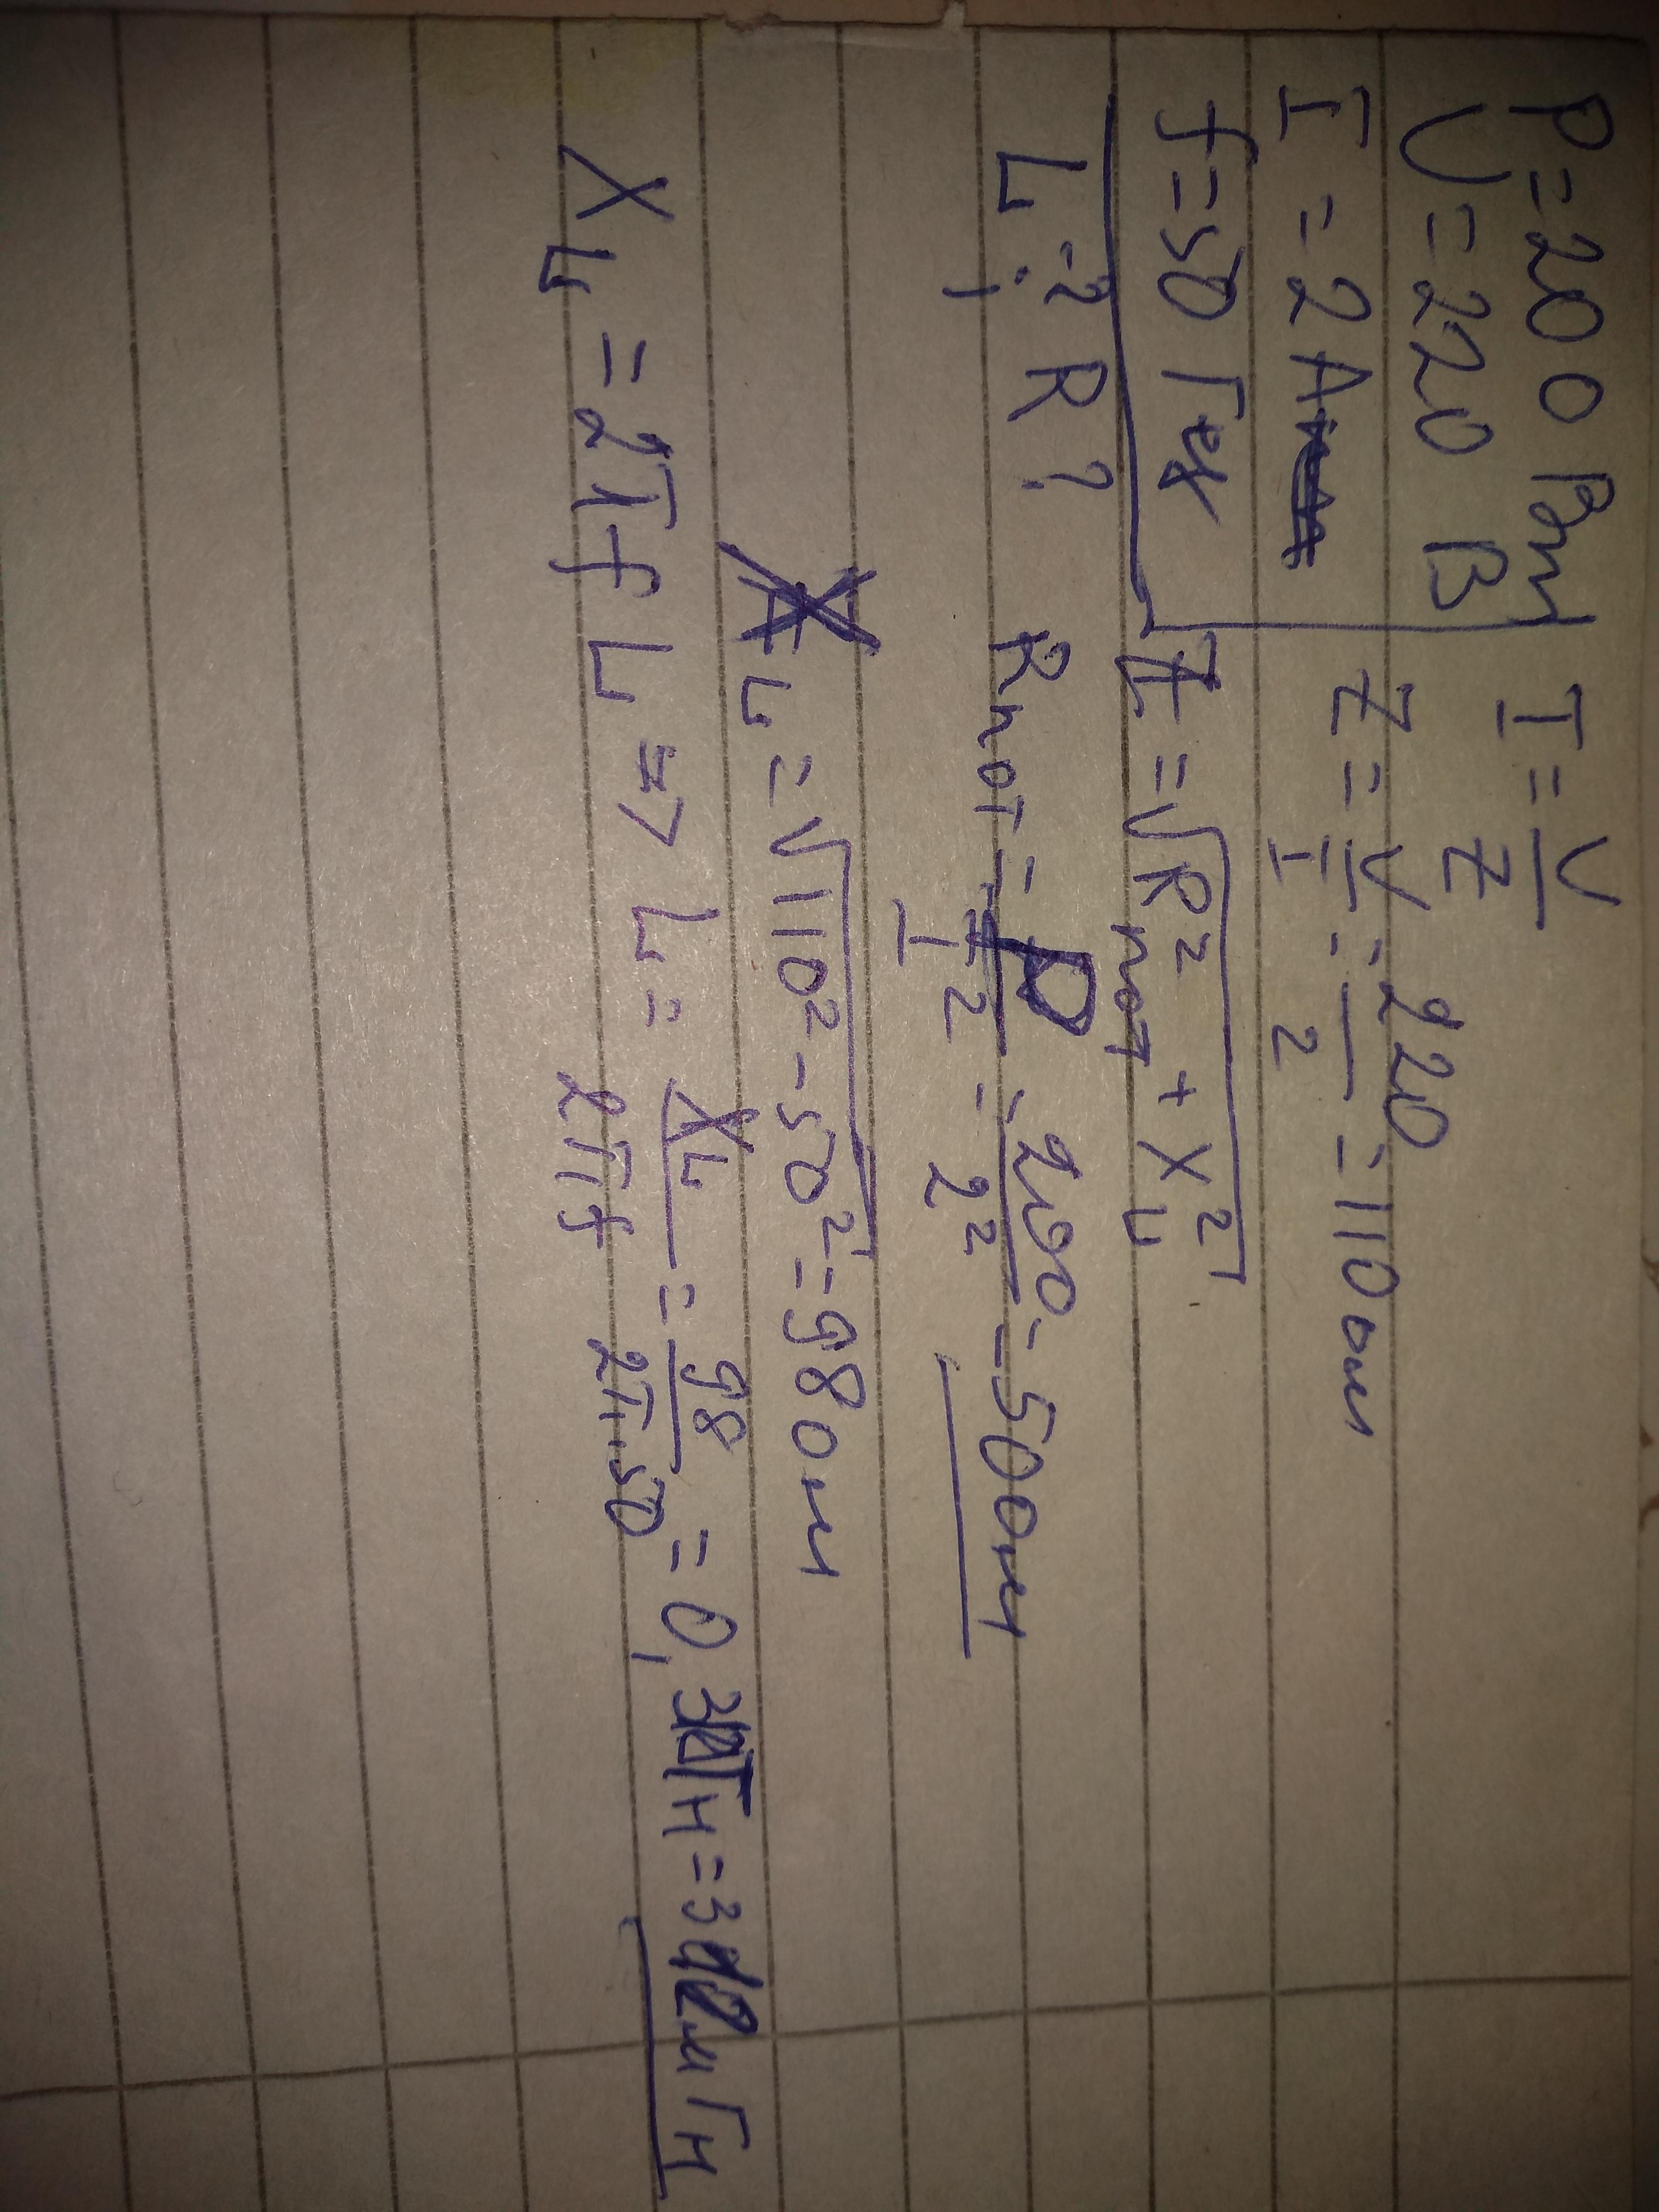 P=200 Вт
U=220 В
I=2А
f=50 Гц
L-?; R?
I=U/Z
Z=U/I=220/2=110 ом
Z=√(R²пот+X²L)
Rпот=P/I²=200/2²=50 ом
XL=√(110²-50²)=98 ом
XL=2πfL => L=XL/2πf=98/2π·50=0,31Гн=312мГн